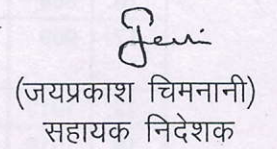 (जयप्रकाश चिमनानी)
सहायक निदेशक